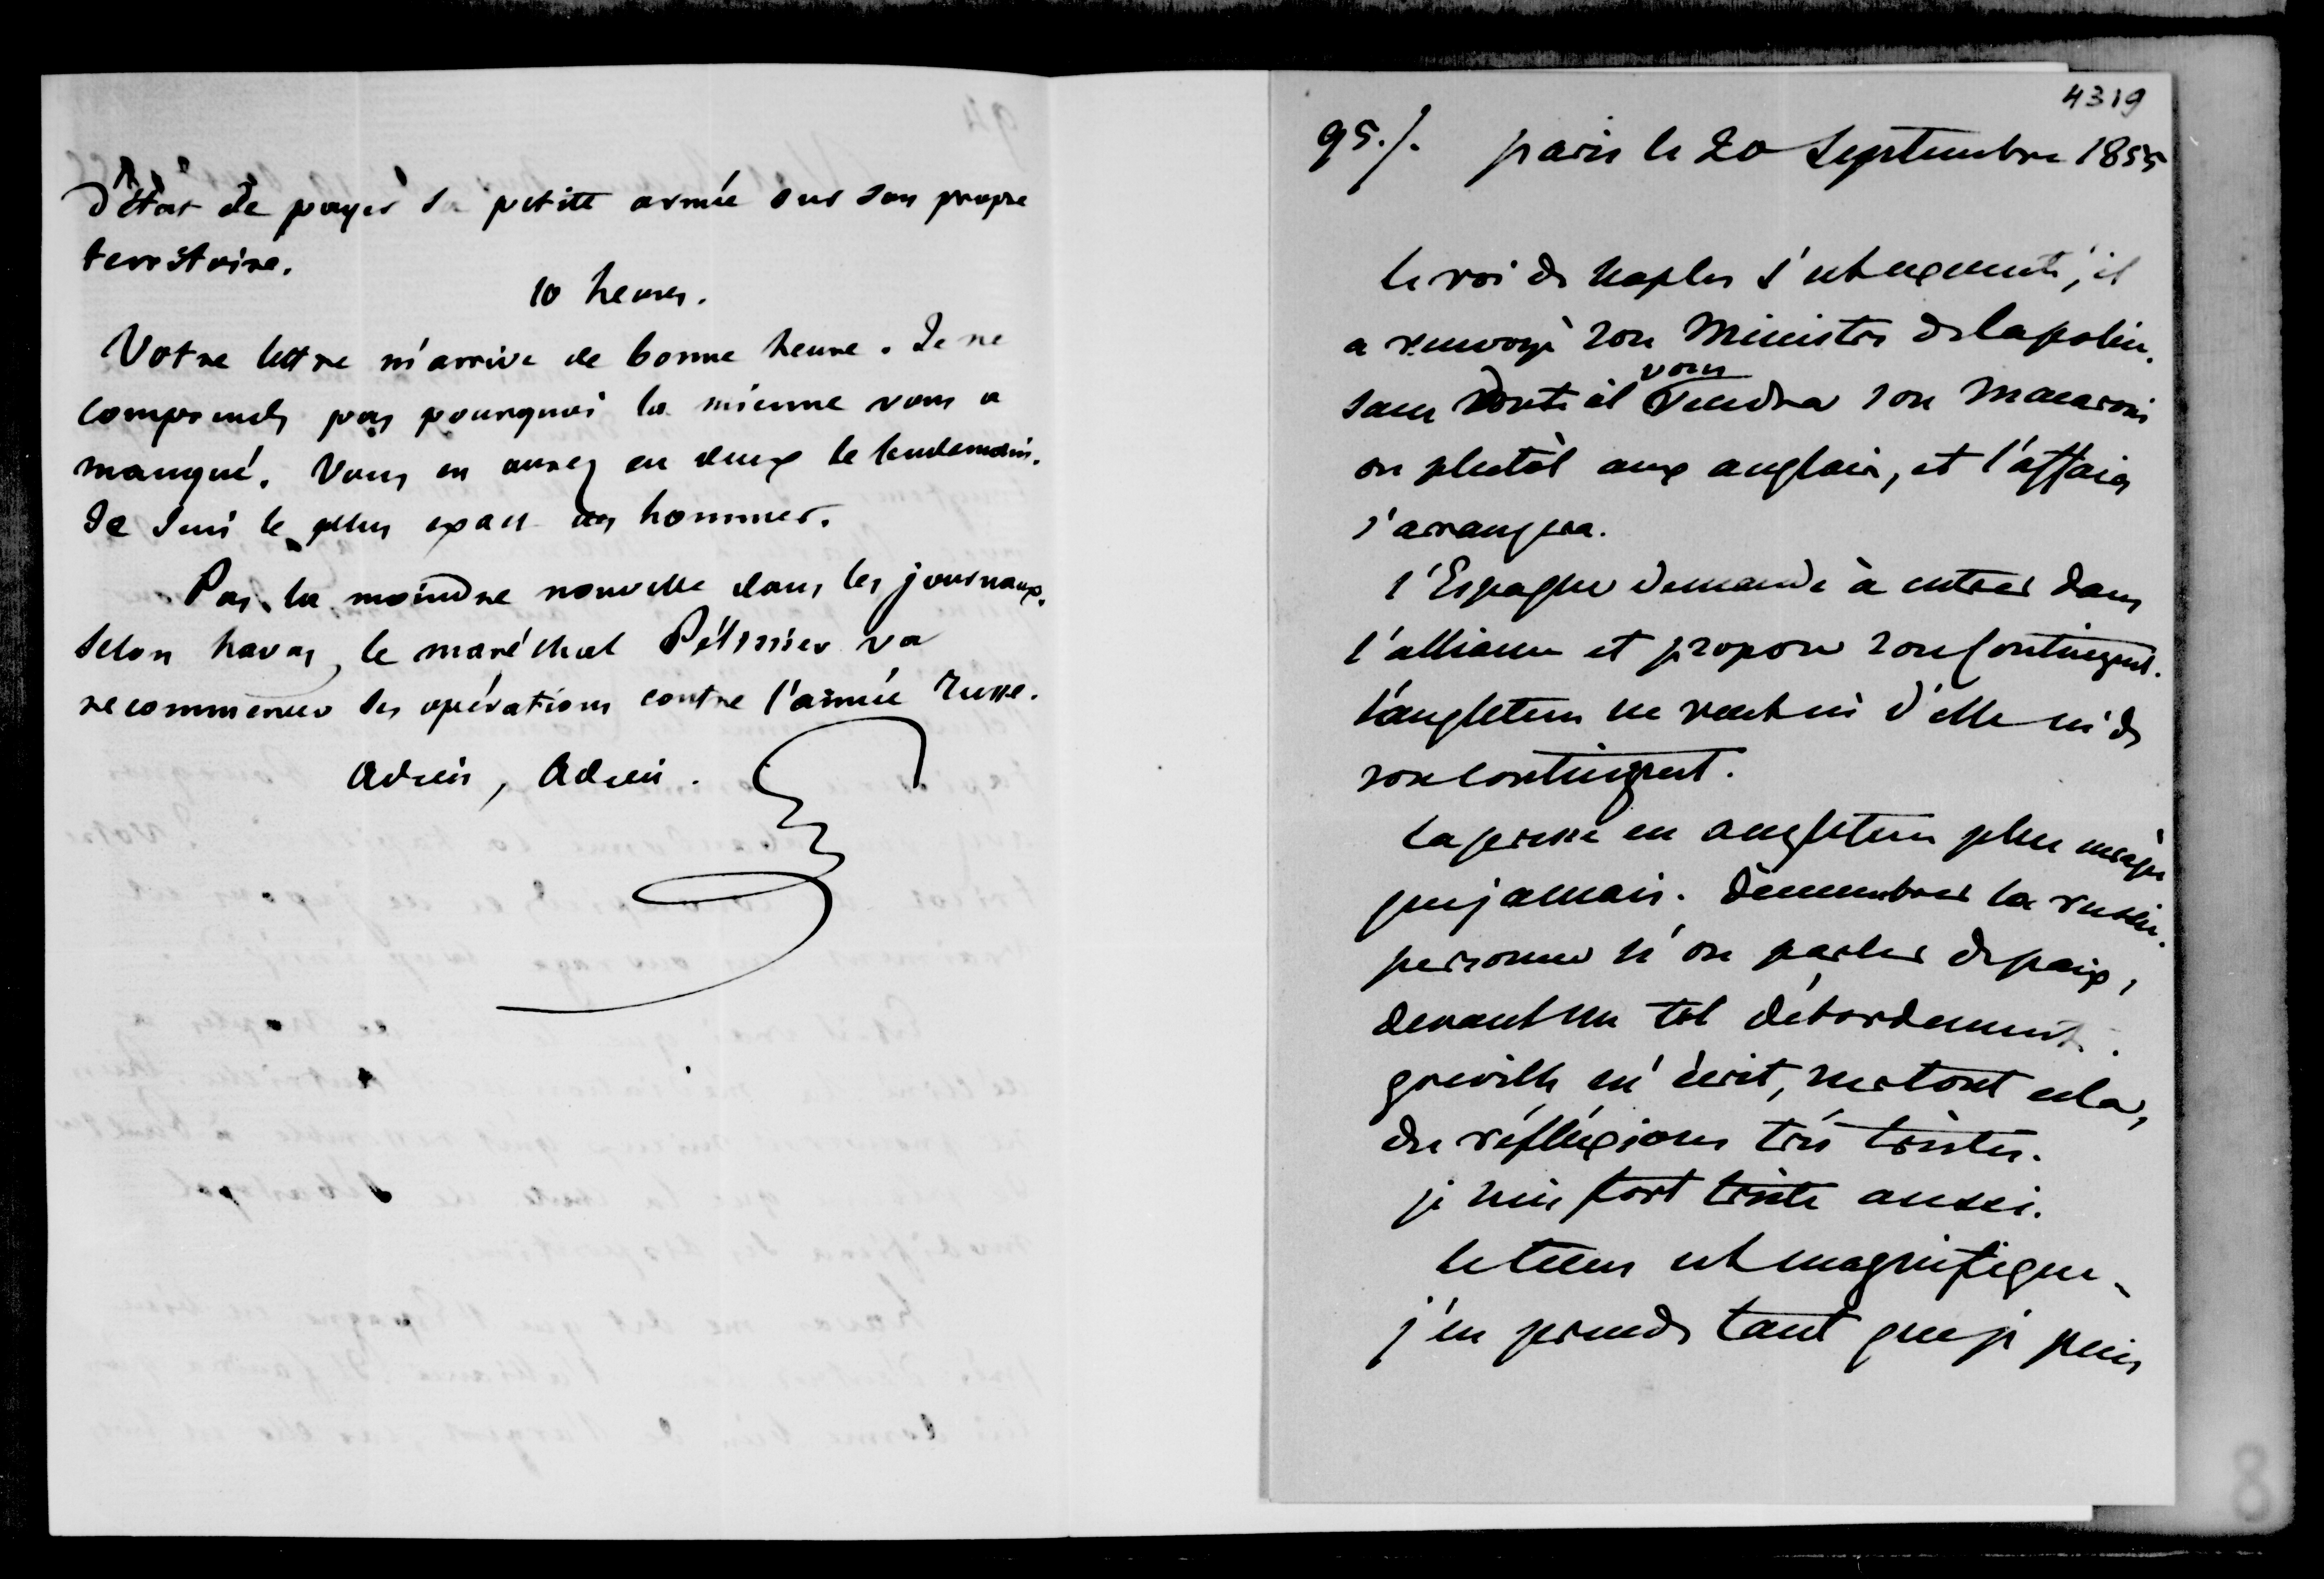 d'état de payer sa petite armée sur son propre
territoire.
10 heures.
Votre lettre m'arrive de bonne heure. Je ne
comprends pas pourquoi la mienne vous a
manqué. Vous en aurez eu deux le lendemain.
Je suis le plus exact des hommes.
Pas la moindre nouvelle dans les journaux.
Selon havas, le maréchal Pélissier va
recommencer les opérations contre l'armée Russe.
Adieu, Adieu.
4319
95./. paris le 20 Septembre 1855
le roi de Naples s'est exécuté, il
a renvoyé son Ministre de la police.
sans doute il vous vendra son Macaroni
ou plutôt aux anglais, et l'affaire
s'arrangera.
l'Espagne demande à entrer dans
l'alliance et propose son contingent.
l'angleterre ne veut ni d'elle ni de
son contingent.
la presse en angleterre plus enragée
que jamais. démembrer la russie.
personne n'ose parler de paix,
devant un tel débordement.
greville m'écrit, sur tout cela,
des réfléxions très tristes.
je suis fort triste aussi.
le tems est magnifique
j'en prends tant que je puis
8